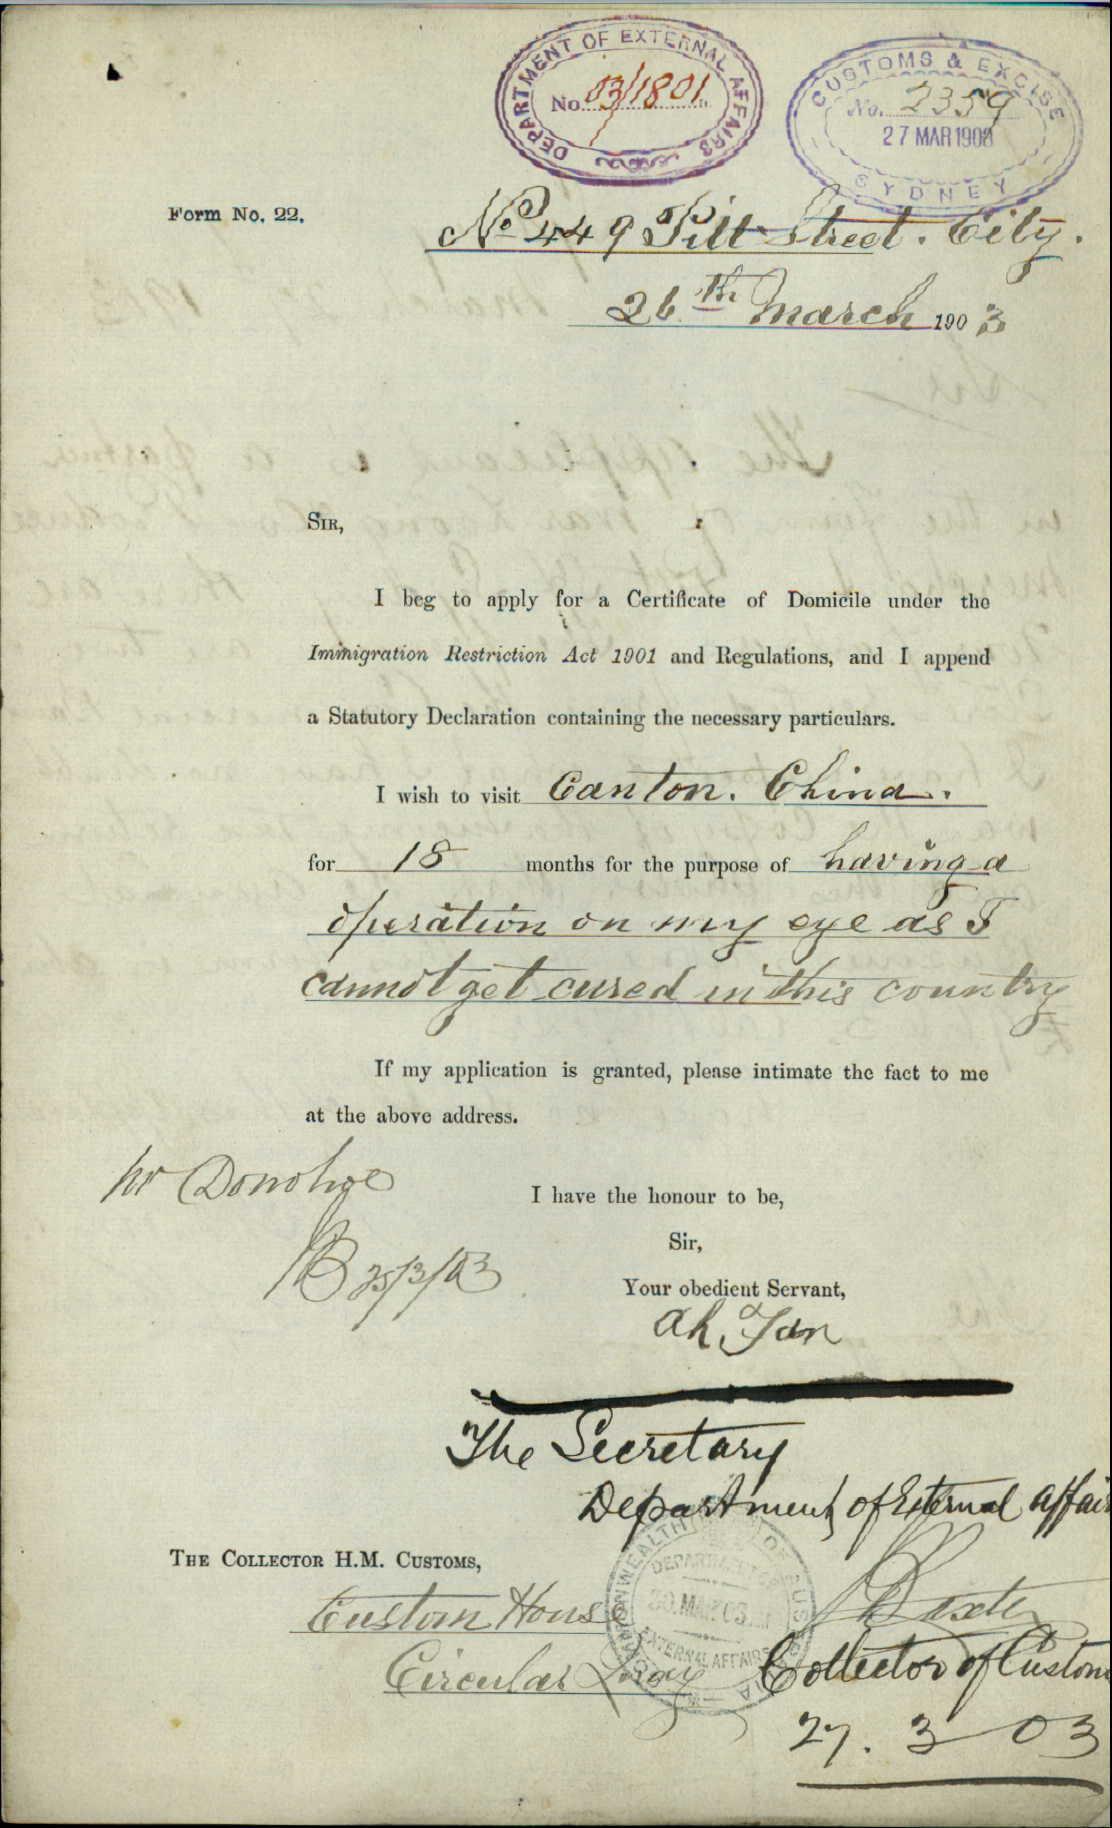 DEPARTMENT OF EXTERNAL AFFAIRS
No. 03/1801
CUSTOMS & EXCISE
No. 2359
27 MAR 1903
SYDNEY
Form No. 22.
No 449 Pitt Street. City.
26th March 1903
SIR,
I beg to apply for a Certificate of Domicile under the
Immigration Restriction Act 1901 and Regulations, and I append
a Statutory Declaration containing the necessary particulars.
I wish to visit Canton. China.
for 18 months for the purpose of having a
operation on my eye as I
cannot get cured in this country
If my application is granted, please intimate the fact to me
at the above address.
Mr Donohoe
I have the honour to be,
Sir,
/3/03
Your obedient Servant,
Ah Yan
The Secretary
Department of External Affair
THE COLLECTOR H.M. CUSTOMS,
COMMONWEALTH OF AUSTRALIA
DEPARTMENT OF
30. MAR. 03
EXTERNAL AFFAIRS
Custom House
Circular Quay
Baxter
Collector of Custom
27. 3 03